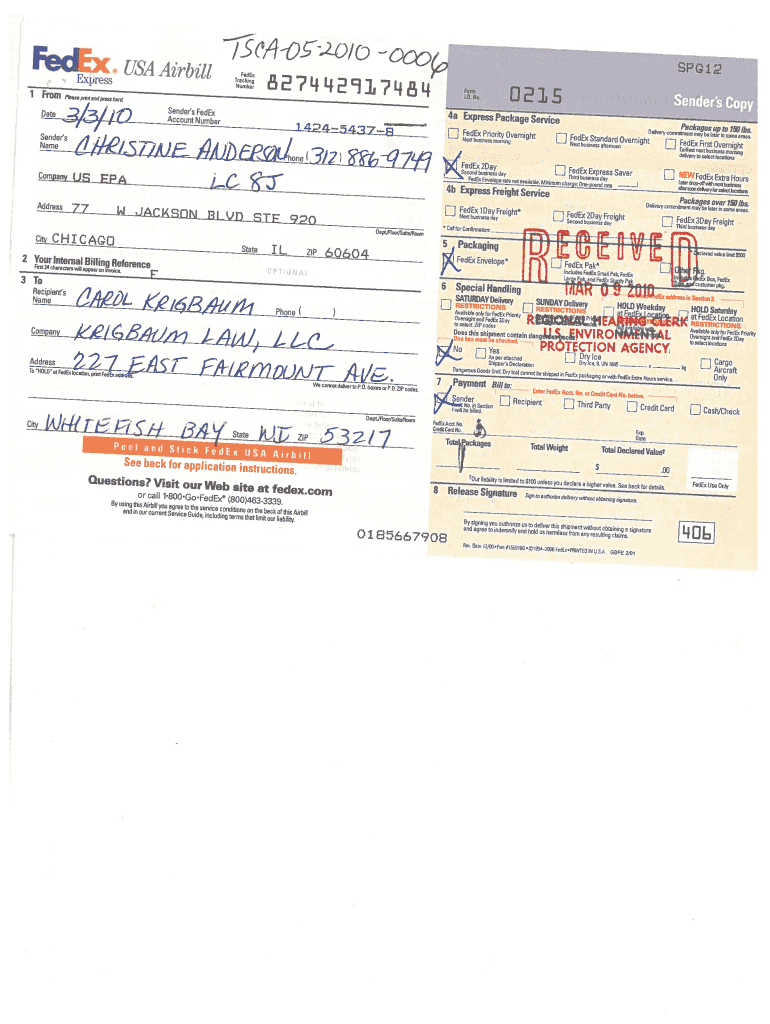 TSCA-05-2010-0006
FedEx® USA Airbill
Express
FedEx Tracking Number 827442917484
1 From Please print and press hard.
Date 3/3/10 Sender's FedEx Account Number 1424-5437-8
Sender's Name CHRISTINE ANDERSON Phone (312) 886-9749
Company US EPA LC 8J
Address 77 W JACKSON BLVD STE 920
Dept./Floor/Suite/Room
City CHICAGO State IL ZIP 60604
2 Your Internal Billing Reference
First 24 characters will appear on invoice. OPTIONAL
3 To
Recipient's Name CAROL KRIGBAUM Phone ( )
Company KRIGBAUM LAW, LLC
Address 227 EAST FAIRMOUNT AVE.
To "HOLD" at FedEx location, print FedEx address. We cannot deliver to P.O. boxes or P.O. ZIP codes.
Dept./Floor/Suite/Room
City WHITEFISH BAY State WI ZIP 53217
Peel and Stick FedEx USA Airbill
See back for application instructions.
Questions? Visit our Web site at fedex.com
or call 1-800-Go-FedEx® (800)463-3339.
By using this Airbill you agree to the service conditions on the back of this Airbill
and in our current Service Guide, including terms that limit our liability.
0185667908
SPG12
Form I.D. No. 0215 Sender's Copy
4a Express Package Service Packages up to 150 lbs.
Delivery commitment may be later in some areas.
FedEx Priority Overnight
Next business morning
FedEx Standard Overnight
Next business afternoon
FedEx First Overnight
Earliest next business morning
delivery to select locations
X FedEx 2Day
Second business day
FedEx Express Saver
Third business day
NEW FedEx Extra Hours
Later drop-off with next business
afternoon delivery for select locations
FedEx Envelope rate not available. Minimum charge: One-pound rate
4b Express Freight Service Packages over 150 lbs.
Delivery commitment may be later in some areas.
FedEx 1Day Freight*
Next business day
FedEx 2Day Freight
Second business day
FedEx 3Day Freight
Third business day
* Call for Confirmation:
5 Packaging
Declared value limit $500
X FedEx Envelope*
FedEx Pak*
Includes FedEx Small Pak, FedEx
Large Pak, and FedEx Sturdy Pak
Other Pkg.
RECEIVED
MAR 09 2010
REGIONAL HEARING CLERK
U.S. ENVIRONMENTAL
PROTECTION AGENCY
6 Special Handling
SATURDAY Delivery
RESTRICTIONS
Available only for FedEx Priority
Overnight and FedEx 2Day
to select ZIP codes
SUNDAY Delivery
RESTRICTIONS
HOLD Weekday
at FedEx Location
HOLD Saturday
at FedEx Location
RESTRICTIONS
Available only for FedEx Priority
Overnight and FedEx 2Day
to select locations
Does this shipment contain dangerous goods?
One box must be checked.
X No
Yes
As per attached
Shipper's Declaration
Dry Ice
Dry Ice, 9, UN 1845 x kg
Cargo
Aircraft
Only
Dangerous Goods (incl. Dry Ice) cannot be shipped in FedEx packaging or with FedEx Extra Hours service.
7 Payment Bill to:
Enter FedEx Acct. No. or Credit Card No. below.
X Sender
Acct. No. in Section
1 will be billed.
Recipient
Third Party
Credit Card
Cash/Check
FedEx Acct. No.
Credit Card No.
Exp.
Date
Total Packages Total Weight Total Declared Value†
$ .00
†Our liability is limited to $100 unless you declare a higher value. See back for details. FedEx Use Only
8 Release Signature Sign to authorize delivery without obtaining signature.
By signing you authorize us to deliver this shipment without obtaining a signature
and agree to indemnify and hold us harmless from any resulting claims.
406